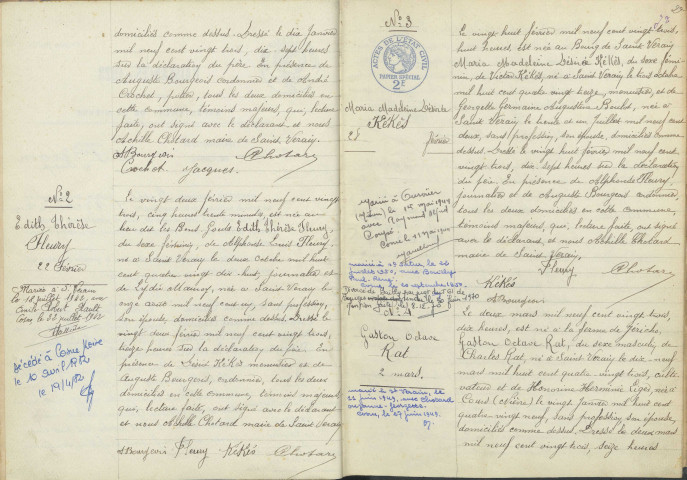 domiciliés comme dessus. Dressé le dix Janvier
mil neuf cent vingt trois, dix-sept heures
sur la déclaration du père. En présence de
Auguste Bourgeois cordonnier et de André
Crochet, tous les deux domiciliés en
cette commune, témoins majeurs, qui, lecture
faite, ont signé avec le déclarant et nous
Achille Chotard maire de Saint Verain.
A Bourgeois Chotard
Crochet Jacques.
N° 2
Edith Thérèse
Fleury
22 Février
Mariée à S. Verain
le 18 juillet 1942, avec
décédée à Cosne
le 10 avril 1982
le 19/4/82
Le vingt deux février mil neuf cent vingt
trois, cinq heures trente minutes, est née au
lieu dit les Bons Edith Thérèse Fleury,
du sexe féminin, de Alphonse Louis Fleury,
né à Saint Verain le deux octobre mil huit
cent quatre vingt dix huit, journalier et
de Lydie née à Saint Verain le
onze août mil neuf cent un, sans profession,
son épouse, domiciliés comme dessus. Dressé le
vingt deux février mil neuf cent vingt trois,
heures sur la déclaration du père. En
présence de Désiré Kékés menuisier et de
Auguste Bourgeois, cordonnier, tous les deux
domiciliés en cette commune, témoins majeurs
qui, lecture faite, ont signé avec le déclarant
et nous Achille Chotard maire de Saint Verain
A Bourgeois Fleury Kékés Chotard
N° 3
ACTES DE L'ETAT CIVIL
PAPIER SPECIAL
2F
Maria Madeleine Désirée
Kékés
25 février
Le vingt huit février mil neuf cent vingt trois,
huit heures est née au Bourg de Saint Verain
Maria Madeleine Désirée Kékés, du sexe fémi-
nin, de Victor Kékés, né à Saint Verain le trois octobre
mil huit cent quatre vingt treize, menuisier, et de
Georgette Germaine Augustine Boulet, née à
Saint Verain le trente et un Juillet mil neuf cent
deux, sans profession, son épouse, domiciliés comme
dessus. Dressé le vingt huit février mil neuf cent
vingt trois, dix sept heures sur la déclaration
du père. En présence de Alphonse Fleury
journalier et de Auguste Bourgeois cordonnier,
tous les deux domiciliés en cette commune,
témoins majeurs, qui, lecture faite, ont signé
avec le déclarant, et nous Achille Chotard
maire de Saint Verain.
Fleury Chotard
Kékés
A Bourgeois
N° 4
Gaston Octave
Rat
2 mars.
Le deux mars mil neuf cent vingt trois,
dix heures, est né à la ferme de Jéricho,
Gaston Octave Rat, du sexe masculin, de
Charles Rat, né à Saint Verain le dix-neuf
mars mil huit cent quatre-vingt trois, culti-
vateur et de Honorine Hermine née à
le vingt Janvier mil huit cent
quatre-vingt neuf, sans profession, son épouse,
domiciliés comme dessus. Dressé le deux mars
mil neuf cent vingt trois, seize heures